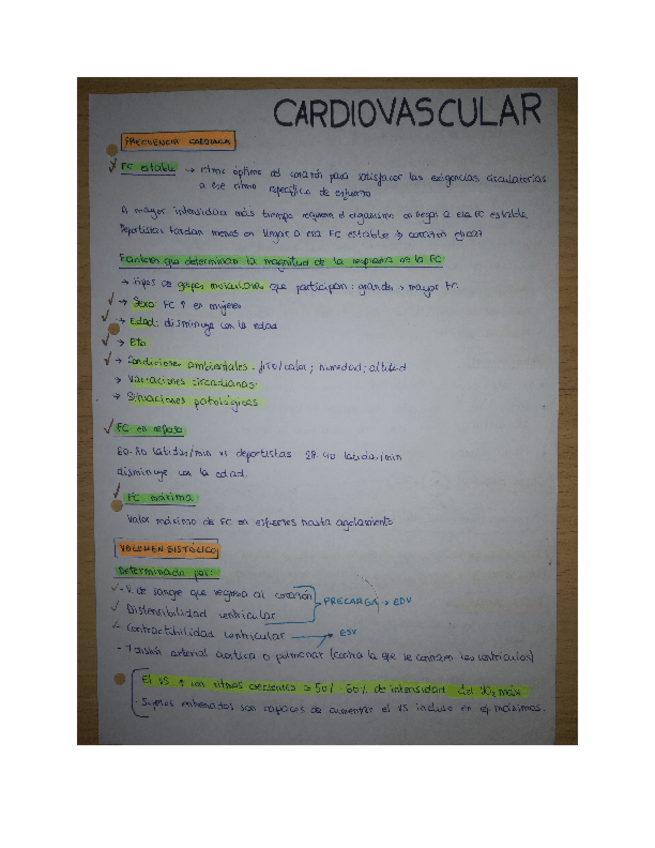 CARDIOVASCULAR
FRECUENCIA CARDIACA
FC estable → ritmo óptimo del corazón para satisfacer las exigencias circulatorias
a ese ritmo específico de esfuerzo
A mayor intensidad más tiempo requiere el organismo en llegar a esa FC estable.
Deportistas tardan menos en llegar a esa FC estable → corazón eficaz
Factores que determinan la magnitud de la respuesta de la FC
→ Tipos de grupos musculares que participan: grandes > mayor FC
→ Sexo: FC ↑ en mujeres
→ Edad: disminuye con la edad
→ Condiciones ambientales: frío/calor; humedad; altitud
→ Variaciones circadianas.
→ Situaciones patológicas
FC en reposo
60-80 latidos/min vs deportistas 28-40 latidos/min
disminuye con la edad.
FC máxima
Valor máximo de FC en esfuerzos hasta agotamiento
VOLUMEN SISTÓLICO
Determinado por:
- V. de sangre que regresa al corazón
Distensibilidad ventricular
PRECARGA → EDV
Contractibilidad ventricular → ESV
- Tensión arterial aórtica o pulmonar (contra la que se contraen los ventrículos)
El VS ↑ con ritmos crecientes 50%-60% de intensidad del VO₂ máx
· Sujetos entrenados son capaces de aumentar el VS incluso en ej. máximos.